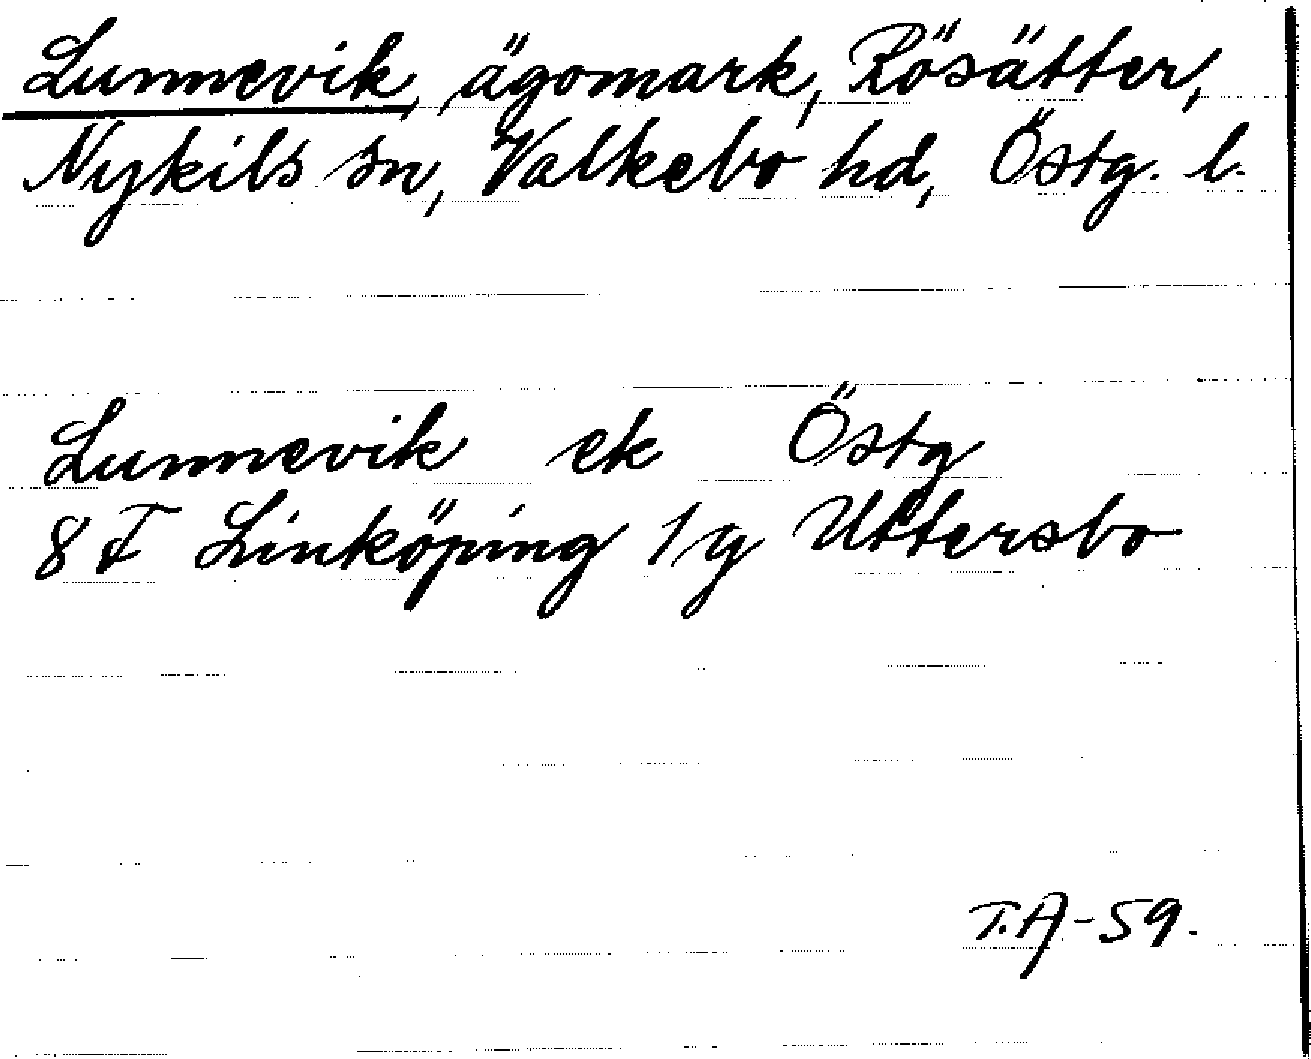 Lunnevik, ägomark, Rösätter,
Nykils sn, Valkebo hd, Östg. l.
Lunnevik ek Östg
8 F Linköping 1 g Uttersbo
T.A-59.